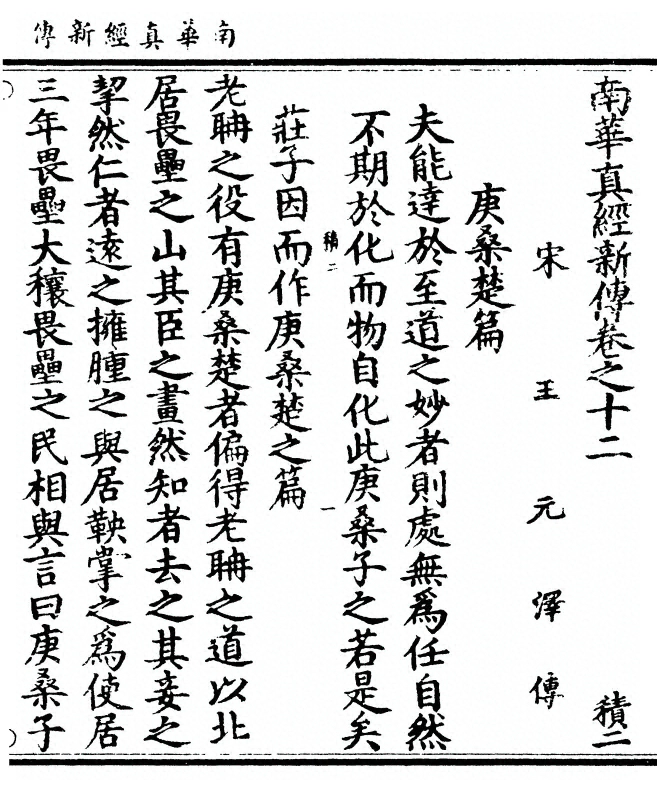 南華真經新傳
南華真經新傳卷之十二 積二
宋王元澤傳
庚桑楚篇
夫能達於至道之妙者則處無爲任自然
不期於化而物自化此庚桑子之若是矣
積二 一
莊子因而作庚桑楚之篇
老聃之役有庚桑楚者偏得老聃之道以北
居畏壘之山其臣之畫然知者去之其妾之
挈然仁者遠之擁腫之與居鞅掌之爲使居
三年畏壘大穰畏壘之民相與言曰庚桑子